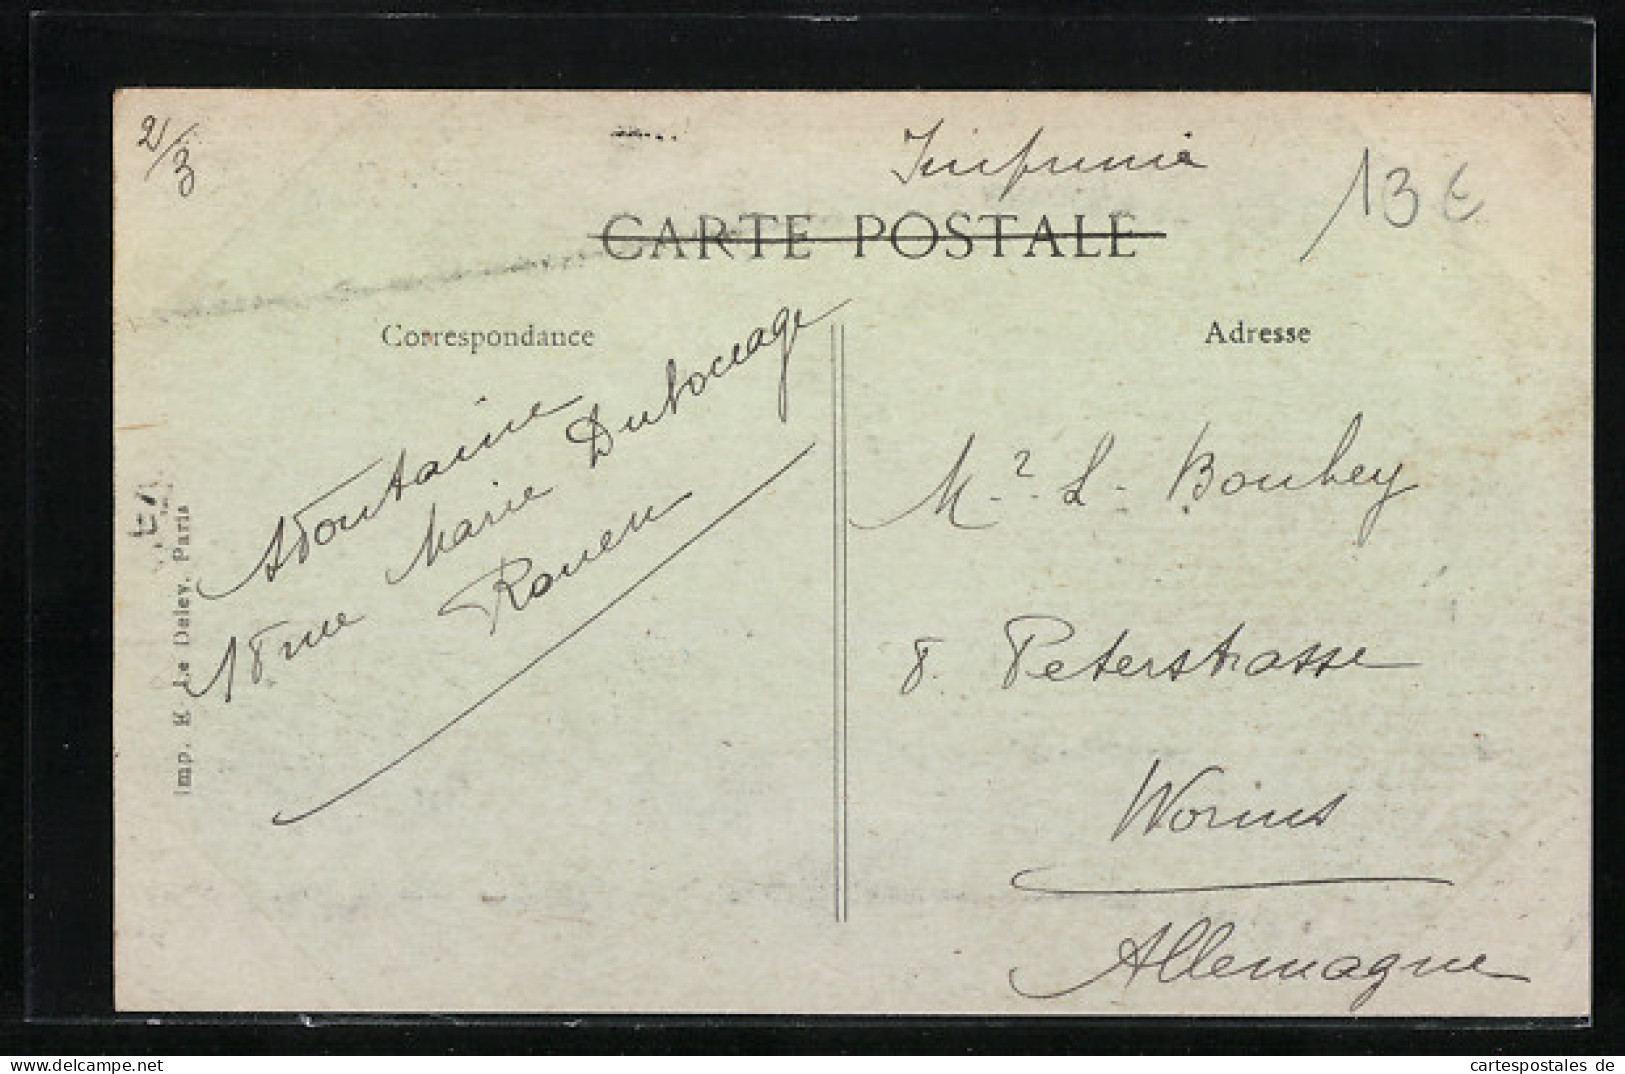 2/3
Imprimé
13 €
CARTE POSTALE
Correspondance
Adresse
AFontaine
18 rue Marie Dubocage
Rouen
Mr. L. Boubey
8. Peterstrasse
Worms
Allemagne
Imp. E. Le Deley, Paris
cartespostales de